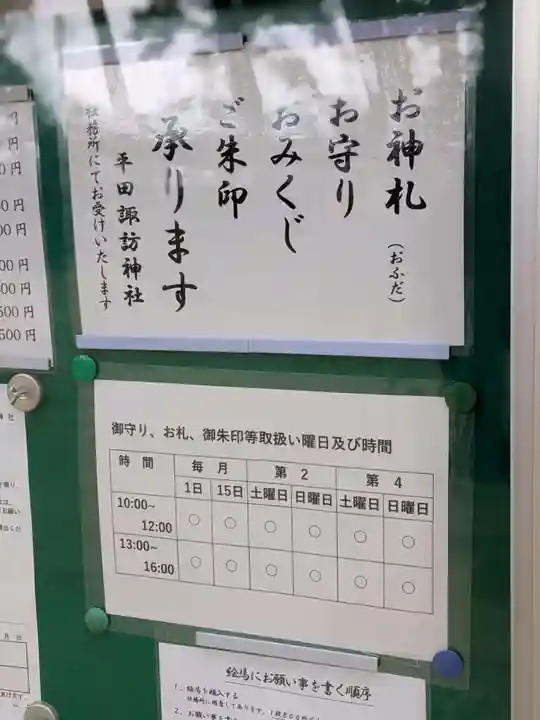 お神札（おふだ）
お守り
おみくじ
ご朱印
承ります
平田諏訪神社
社務所にてお受けいたします
御守り、お札、御朱印等取扱い曜日及び時間
時 間 毎 月 第 2 第 4
1日 15日 土曜日 日曜日 土曜日 日曜日
10:00~
12:00 ○ ○ ○ ○ ○ ○
13:00~
16:00 ○ ○ ○ ○ ○ ○
絵馬にお願い事を書く順序
1、絵馬を購入する
2、お願い事を書
00円
00円
500円
500円